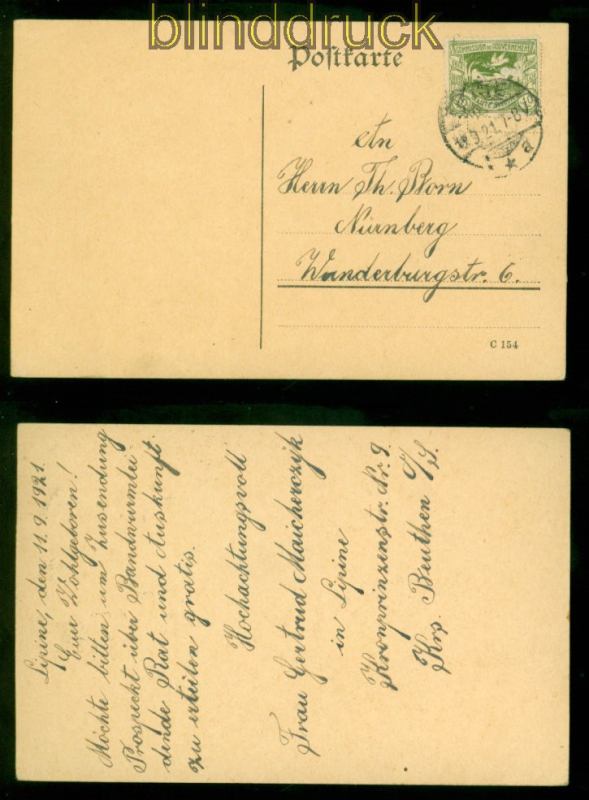 blinddruck
Postkarte
COMMISSION DE GOUVERNEMENT
9.21.7-8
B
An
Herrn Th. Born
Nürnberg
Wanderburgstr. 6.
C 154
Lipine, den 11.9.1921.
Euer Wohlgeboren!
Möchte bitten um Zusendung
Prospeckt über Bandwürmlei
dende Rat und Auskunft
zu erteilen gratis.
Hochachtungsvoll
Frau Gertrud Maicherczyk
in Lipine
Kronprinzenstr. Nr. 9.
Krs. Beuthen O/S.